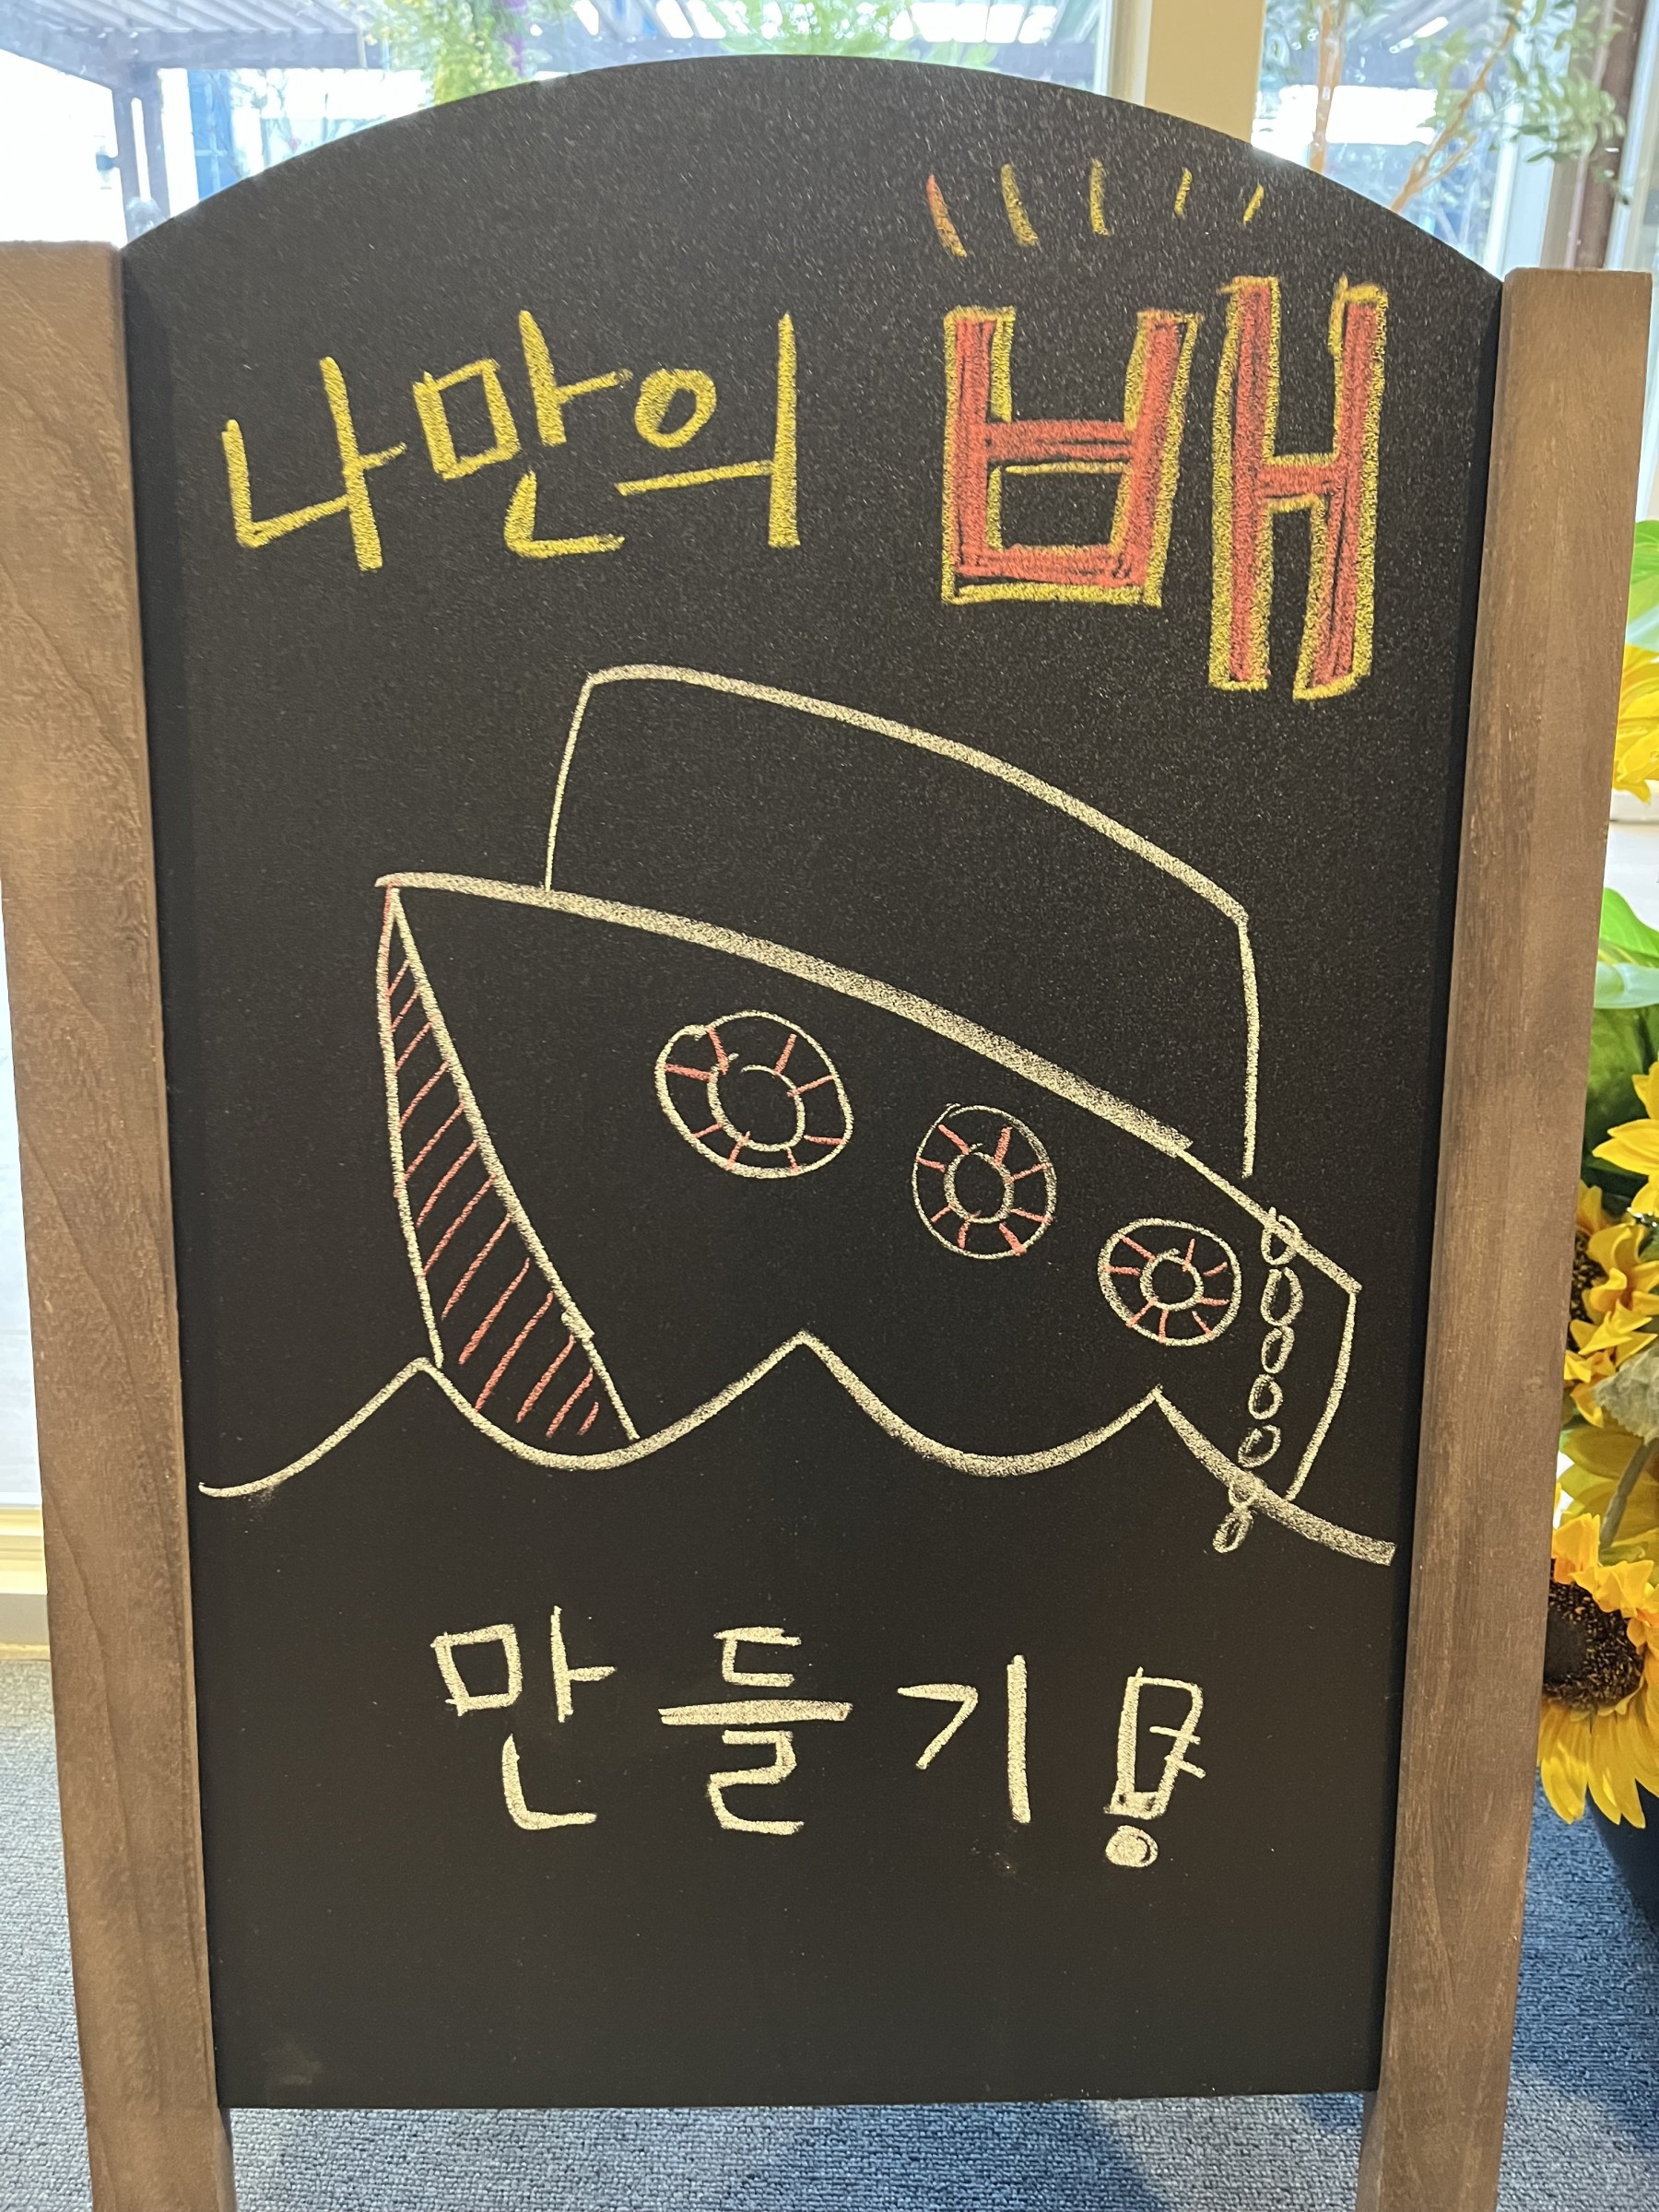 나만의 배
만들기!